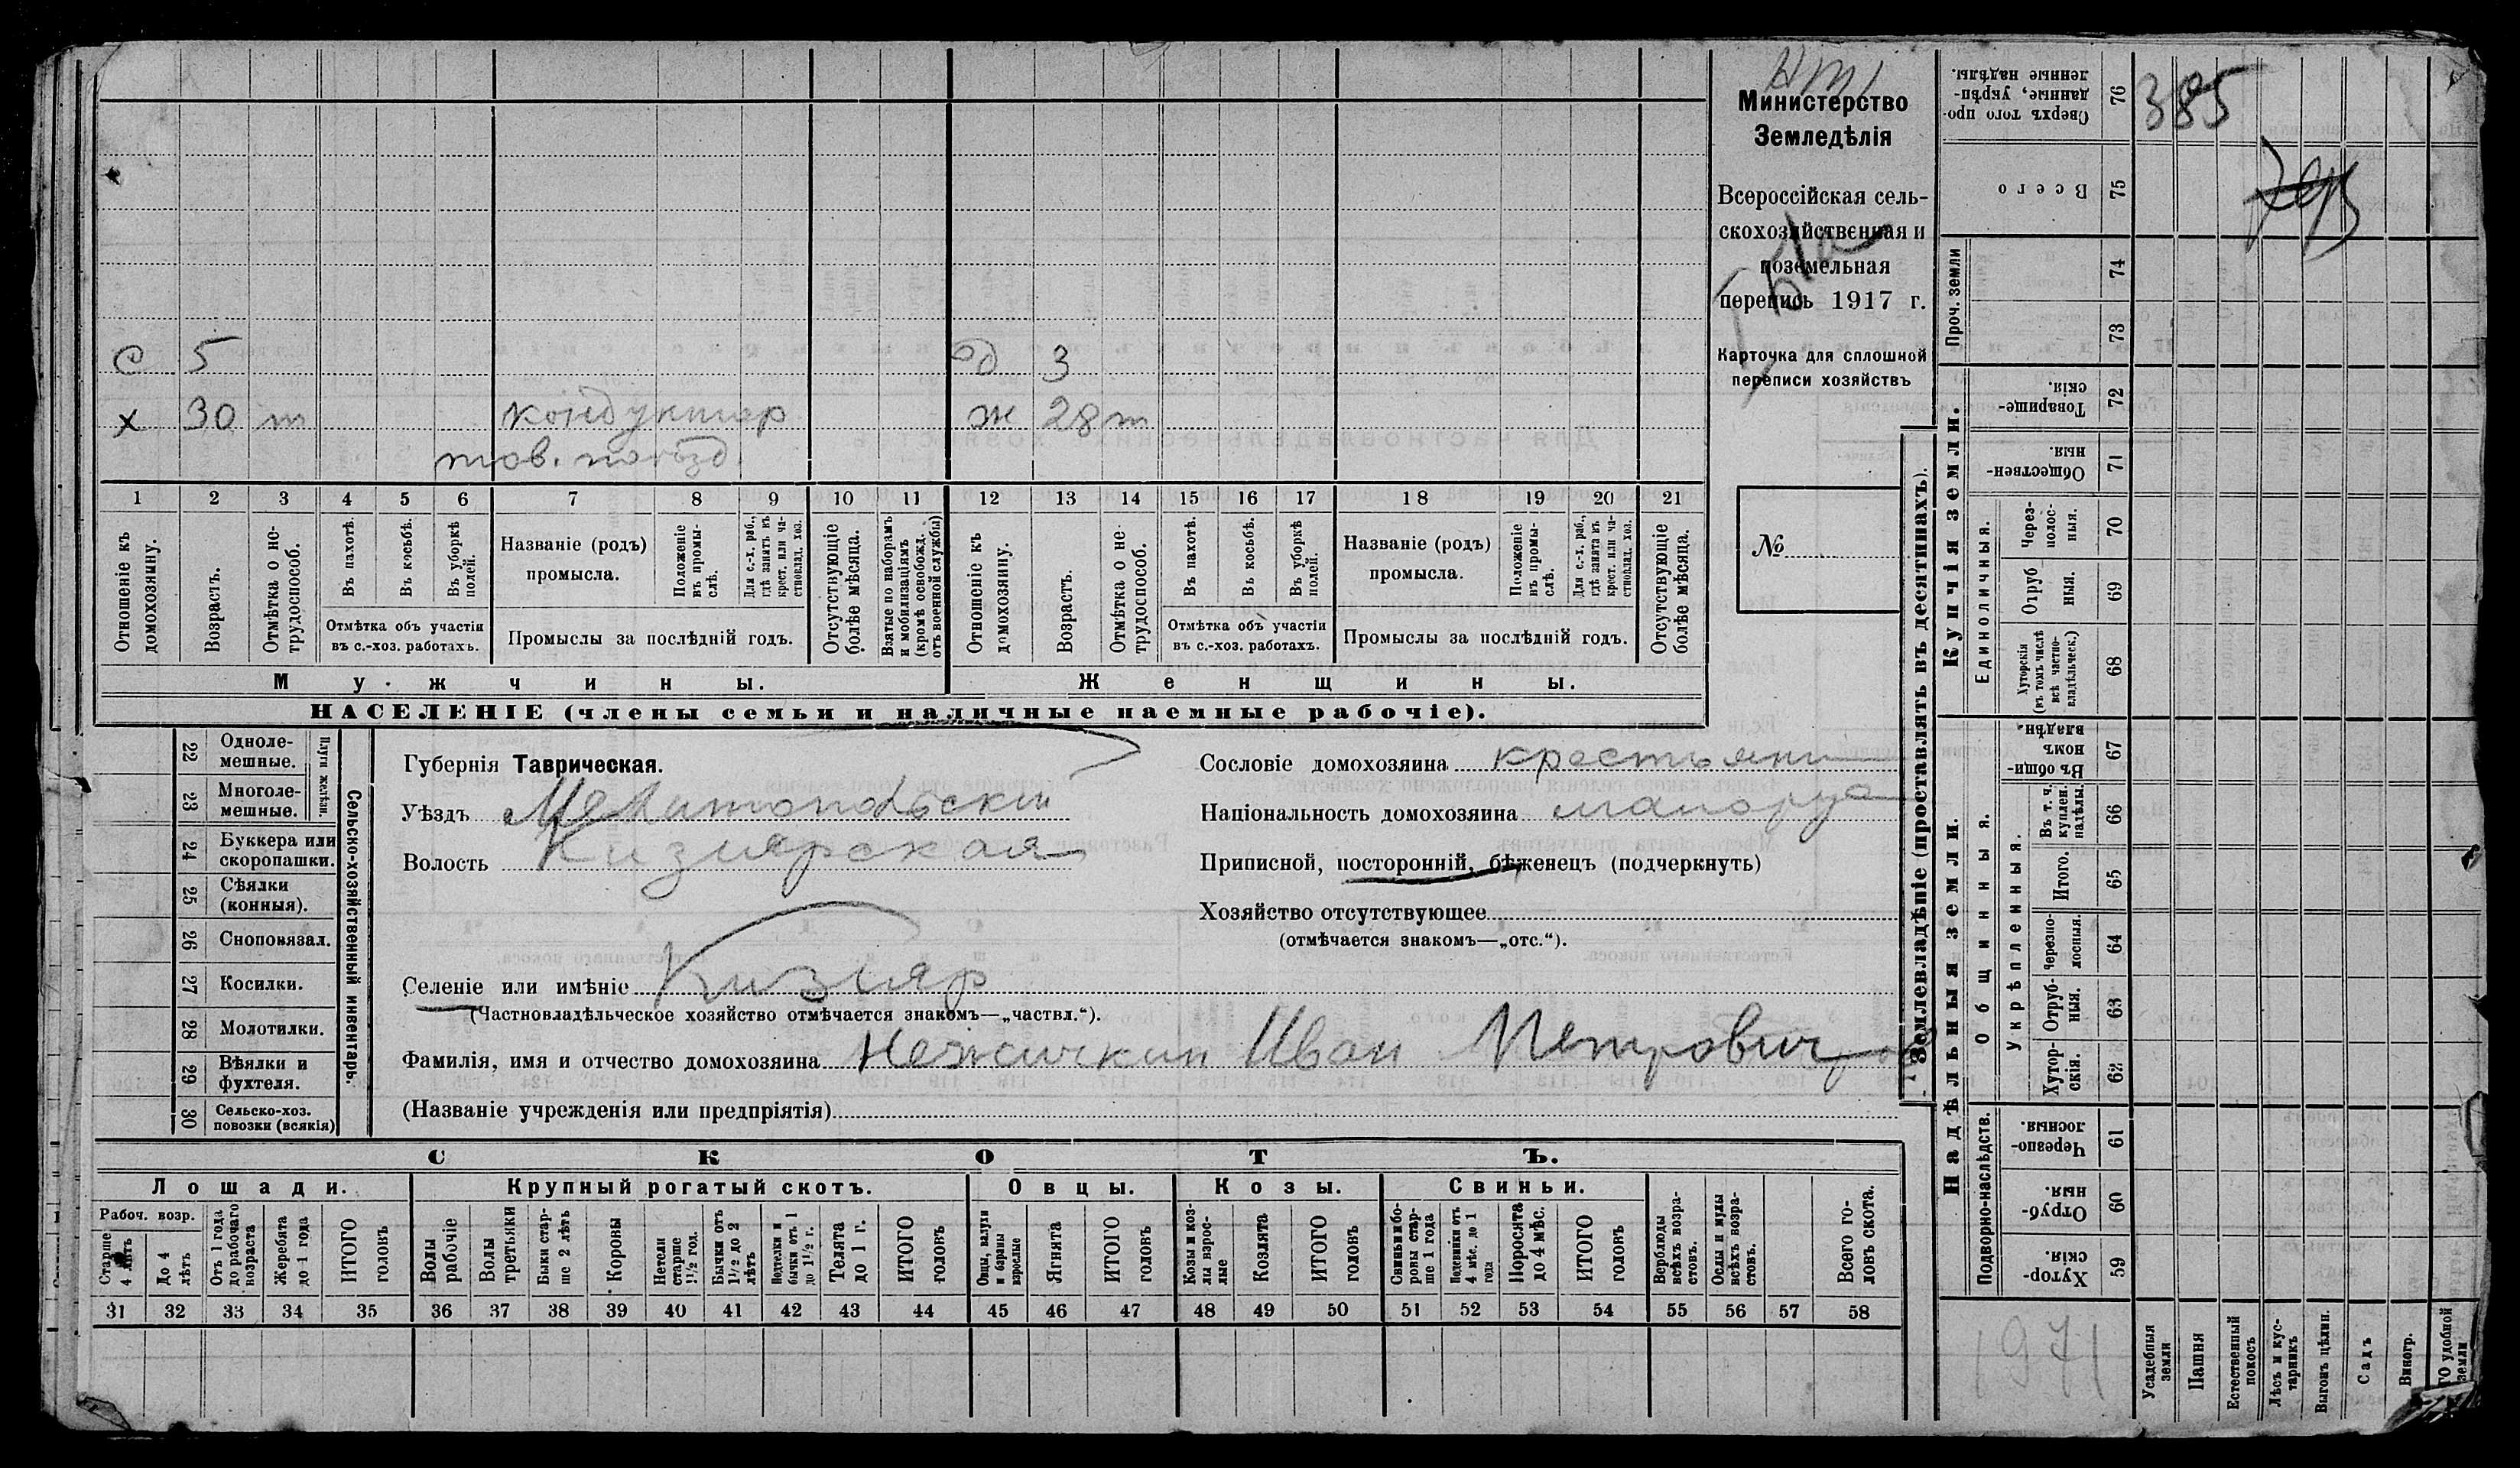 Министерство
Земледѣлія
Всероссійская сель-
скохозяйственная и
поземельная
перепись 1917 г.
Карточка для сплошной
переписи хозяйствъ
№
385
с 5 д 3
х 30 т кондуктор ж 28 т
тов. поѣзд.
1 2 3 4 5 6 7 8 9 10 11 12 13 14 15 16 17 18 19 20 21
Отношеніе къ домохозяину.
Возрастъ.
Отмѣтка о не-трудоспособ.
Въ пахотѣ.
Въ косьбѣ.
Въ уборкѣ полей.
Отмѣтка объ участіи
въ с.-хоз. работахъ.
Названіе (родъ)
промысла.
Положеніе въ промы-слѣ.
Для с.-х. раб., гдѣ занятъ въ крест. или ча-стновлад. хоз.
Промыслы за послѣдній годъ.
Отсутствующіе болѣе мѣсяца.
Взятые по наборамъ и мобилизаціямъ (кромѣ освобожд. отъ военной службы)
Отношеніе къ домохозяину.
Возрастъ.
Отмѣтка о не-трудоспособ.
Въ пахотѣ.
Въ косьбѣ.
Въ уборкѣ полей.
Отмѣтка объ участіи
въ с.-хоз. работахъ.
Названіе (родъ)
промысла.
Положеніе въ промы-слѣ.
Для с.-х. раб., гдѣ занята въ крест. или ча-стновлад. хоз.
Промыслы за послѣдній годъ.
Отсутствующіе болѣе мѣсяца.
Мужчины. Женщины.
НАСЕЛЕНІЕ (члены семьи и наличные наемные рабочіе).
Сельско-хозяйственный инвентарь.
Плуги желѣзн.
22 Одноле-мешные.
23 Многоле-мешные.
24 Буккера или скоропашки.
25 Сѣялки (конныя).
26 Сноповязал.
27 Косилки.
28 Молотилки.
29 Вѣялки и фухтеля.
30 Сельско-хоз. повозки (всякія)
Губернія Таврическая.
Уѣздъ Мелитопольскій
Волость Кизиярская
Селеніе или имѣніе Кизияр
(Частновладѣльческое хозяйство отмѣчается знакомъ—„частвл.“).
Фамилія, имя и отчество домохозяина Нежичкин Иван Петрович
(Названіе учрежденія или предпріятія)
Сословіе домохозяина крестьянин
Національность домохозяина малорус
Приписной, посторонній, бѣженецъ (подчеркнуть)
Хозяйство отсутствующее
(отмѣчается знакомъ—„отс.“).
СКОТЪ.
Лошади. Крупный рогатый скотъ. Овцы. Козы. Свиньи.
Рабоч. возр.
Старше 4 лѣтъ
До 4 лѣтъ
Отъ 1 года до рабочаго возраста
Жеребята до 1 года
ИТОГО головъ
Волы рабочіе
Волы третьяки
Быки стар-ше 2 лѣтъ
Коровы
Нетели старше 1½ год.
Бычки отъ 1½ до 2 лѣтъ
Подтелки и бычки отъ 1 до 1½ г.
Телята до 1 г.
ИТОГО головъ
Овцы, валухи и бараны взрослые
Ягнята
ИТОГО головъ
Козы и коз-лы взрос-лые
Козлята
ИТОГО головъ
Свиньи и бо-ровы стар-ше 1 года
Подсвинки отъ 4 мѣс. до 1 года
Поросята до 4 мѣс.
ИТОГО головъ
Верблюды всѣхъ возра-стовъ.
Ослы и мулы всѣхъ возра-стовъ.
Всего го-ловъ скота.
31 32 33 34 35 36 37 38 39 40 41 42 43 44 45 46 47 48 49 50 51 52 53 54 55 56 57 58
Землевладѣніе (проставлять въ десятинахъ).
Купчія земли.
Надѣльныя земли.
Сверхъ того про-данные, укрѣп-ленные надѣлы. 76
Всего 75
Проч. земли 74 73
Товарище-скія. 72
Обществен-ныя. 71
Единоличныя.
Через-полос-ныя. 70
Отруб ныя. 69
Хуторскія (въ томъ числѣ всѣ частно-владѣльческ.) 68
Общинныя.
Въ общин-номъ владѣн. 67
Укрѣпленныя.
Въ т. ч. куплен. надѣлы. 66
Итого. 65
Черезпо-лосныя. 64
Отруб-ныя. 63
Хутор-скія. 62
Подворно-наслѣдств.
Черезпо-лосныя. 61
Отруб-ныя. 60
Хутор-скія. 59
1971
Усадебныя земли
Пашня
Естественный покосъ
Лѣсъ и кус-тарникъ
Выгонъ цѣлин.
Садъ
Виногр.
ТО удобной земли